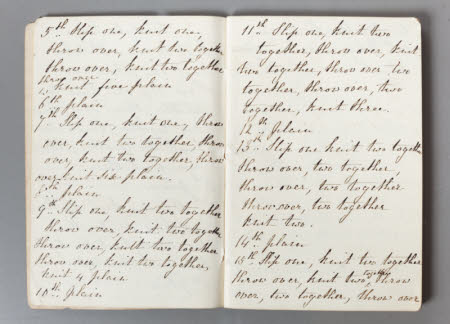 5th Slip one, knit one,
throw over, knit two together
throw over, knit two together
throw over
knit five plain
6th plain
7th Slip one, knit one, throw
over, knit two together, throw
over, knit two together, throw
over knit six plain.
8th plain
9th Slip one, knit two together
throw over, knit two together
throw over, knit two together
throw over, knit two together,
knit 4 plain
10th plain
11th Slip one, knit two
together, throw over, knit
two together, throw over two
together, throw over, two
together, knit three.
12th plain
13th Slip one knit two together
throw over, two together,
throw over, two together
throw over, two together
knit two.
14th plain
15th Slip one, knit two together
throw over, knit two together, throw
over, two together, throw over